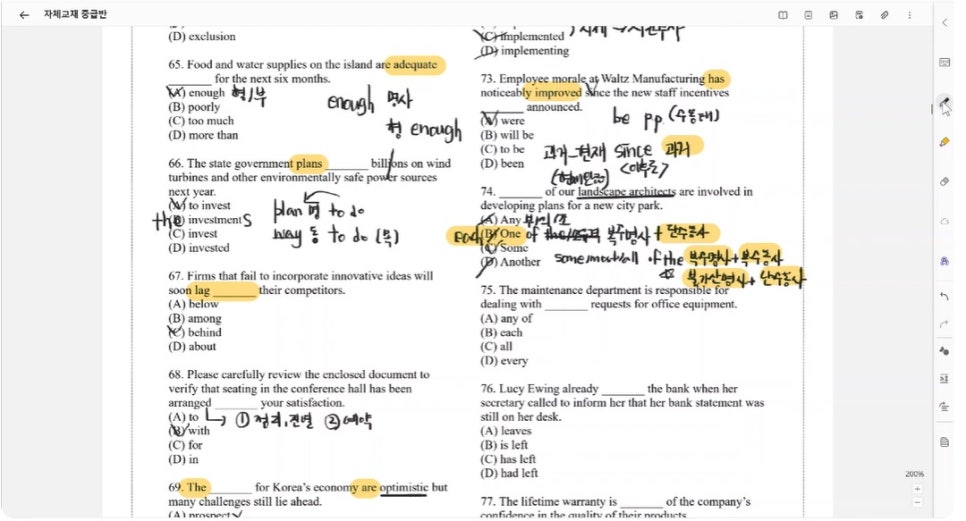 자체교재 중급반
(D) exclusion
65. Food and water supplies on the island are adequate
______ for the next six months.
(A) enough 형/부
(B) poorly
(C) too much
(D) more than
enough 명사
형 enough
66. The state government plans ______ billions on wind
turbines and other environmentally safe power sources
next year.
(A) to invest
the (B) investments
(C) invest
(D) invested
plan 명 to do
way 동 to do (목)
67. Firms that fail to incorporate innovative ideas will
soon lag ______ their competitors.
(A) below
(B) among
(C) behind
(D) about
68. Please carefully review the enclosed document to
verify that seating in the conference hall has been
arranged ______ your satisfaction.
(A) to
(B) with
(C) for
(D) in
① 정리, 진열 ② 예약
69. The ______ for Korea's economy are optimistic but
many challenges still lie ahead.
(A) prospect
(C) implemented
(D) implementing
73. Employee morale at Waltz Manufacturing has
noticeably improved since the new staff incentives
______ announced.
(A) were
(B) will be
(C) to be
(D) been
be pp (수동태)
과거~현재 since 과거
(현재완료) <이후로>
74. ______ of our landscape architects are involved in
developing plans for a new city park.
(A) Any
(B) One of the/소유격 복수명사 + 단수동사
(C) Some
(D) Another
some/most/all of the 복수명사 + 복수동사
불가산명사 + 단수동사
75. The maintenance department is responsible for
dealing with ______ requests for office equipment.
(A) any of
(B) each
(C) all
(D) every
76. Lucy Ewing already ______ the bank when her
secretary called to inform her that her bank statement was
still on her desk.
(A) leaves
(B) is left
(C) has left
(D) had left
77. The lifetime warranty is ______ of the company's
confidence in the quality of their products.
200%